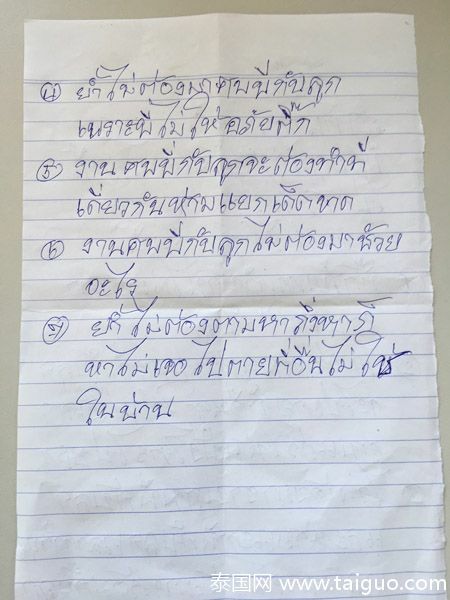 ๔ ย้ำ ไม่ต้องมาศพพี่กับลูก
เพราะพี่ไม่ให้อภัยอีก
๕ งานศพพี่กับลูกจะต้องทำที่
เดียวกันห้ามแยกเด็ดขาด
๖ งานศพพี่กับลูกไม่ต้องมาช้วย
อะไร
๗ ย้ำ ไม่ต้องตามหา ถึงหาก็
หาไม่เจอ ไปตายที่อื่นไม่ใช่
ในบ้าน
泰国网 www.taiguo.com